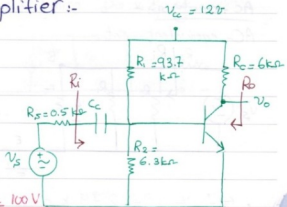 plifier :-
Vcc = 12v
R1 = 93.7 kΩ
Rc = 6kΩ
Ri
Ro
Rs = 0.5 kΩ
Cc
Vo
R2 = 6.3kΩ
Vs
= 100 V